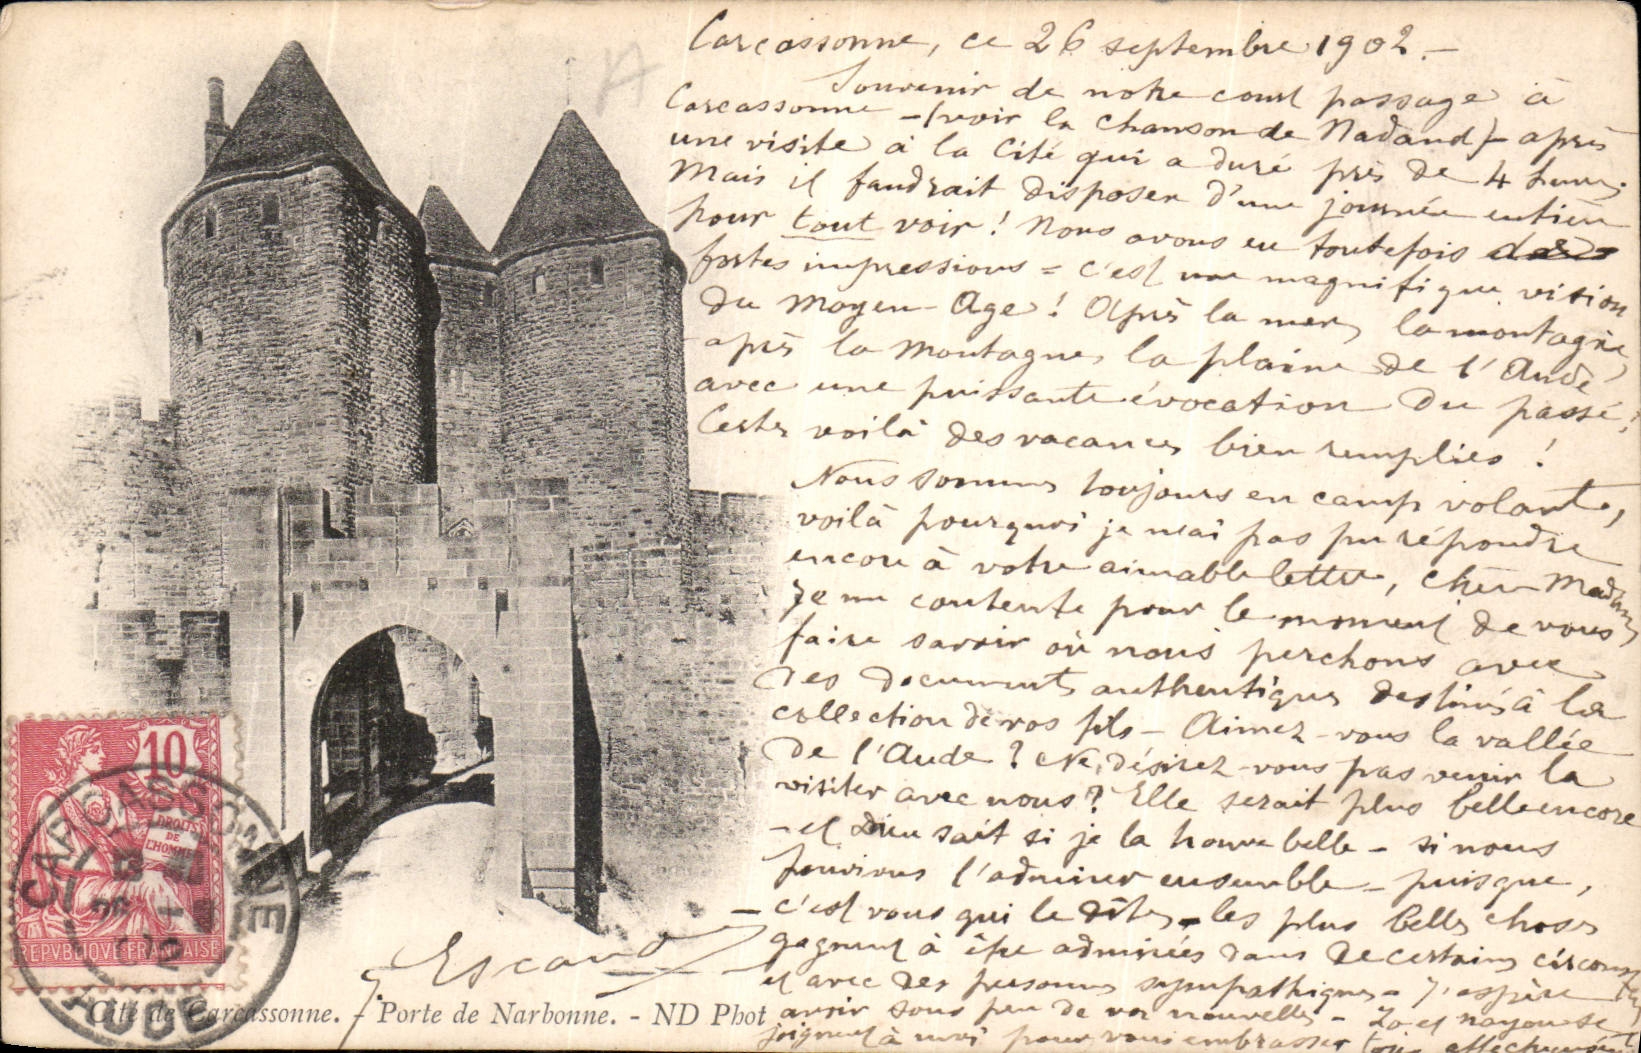 Carcassonne, ce 26 septembre 1902. -
Souvenir de notre court passage à
Carcassonne - (voir la chanson de Nadaud) - après
une visite à la Cité qui a duré près de 4 heures.
Mais il faudrait disposer d'une journée entière
pour tout voir ! Nous avons eu toutefois
fortes impressions = c'est une magnifique vision
du Moyen-Age ! Après la mer, la montagne,
après la montagne, la plaine de l'Aude,
avec une puissante évocation du passé !
Certes voilà des vacances bien remplies !
Nous sommes toujours en camp volant,
voilà pourquoi je n'ai pas pu répondre
encore à votre aimable lettre, chère Madame,
Je me contente pour le moment de vous
faire savoir où nous perchons avec
des documents authentiques destinés à la
collection de vos fils - Aimez-vous la vallée
de l'Aude ? Ne désirez-vous pas venir la
visiter avec nous ? Elle serait plus belle encore
- et Dieu sait si je la trouve belle - si nous
pouvions l'admirer ensemble - puisque,
- c'est vous qui le dîtes, - les plus belles choses
gagnent à être admirées dans de certaines
et avec des personnes sympathiques - J'espère
avoir sous peu de vos nouvelles - et se
joignent à moi pour vous embrasser tous
Escand
10
DROITS
DE
L'HOMME
REPVBLIQVE FRANÇAISE
CARCASSONNE
02
AUDE
Cité de Carcassonne. - Porte de Narbonne. - ND Phot